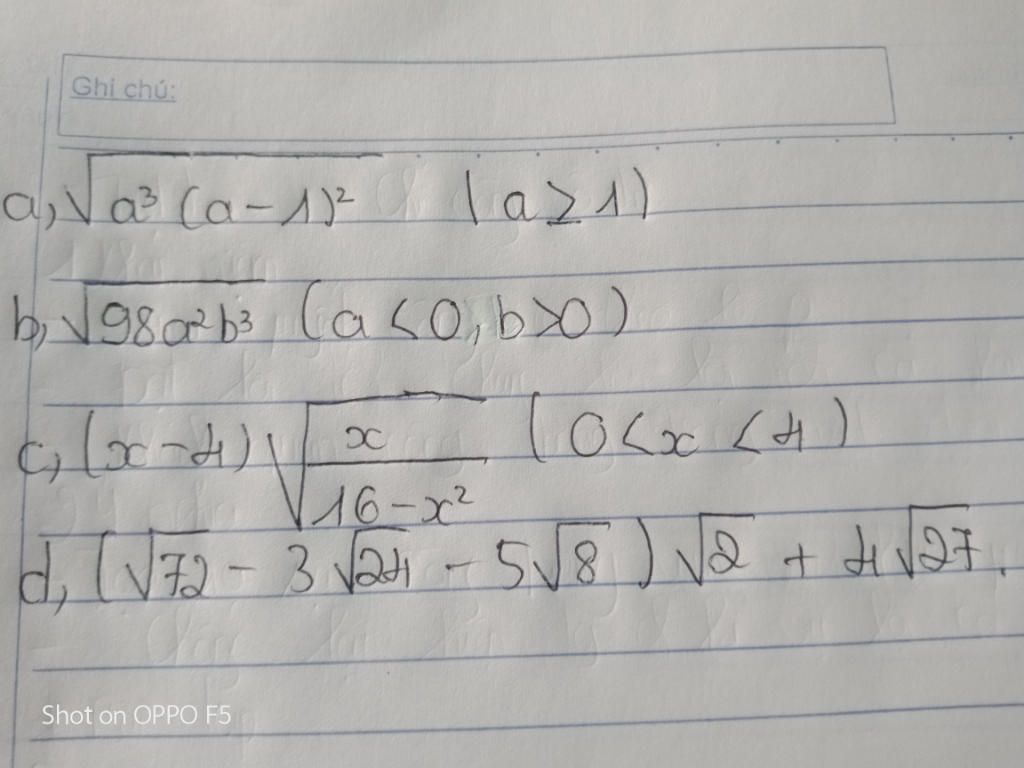 Ghi chú:
a, √a³ (a - 1)² (a ≥ 1)
b, √98a²b³ (a < 0, b > 0)
c, (x - 4) √x/(16 - x²) (0 < x < 4)
d, (√72 - 3√24 - 5√8) √2 + 4√27.
Shot on OPPO F5